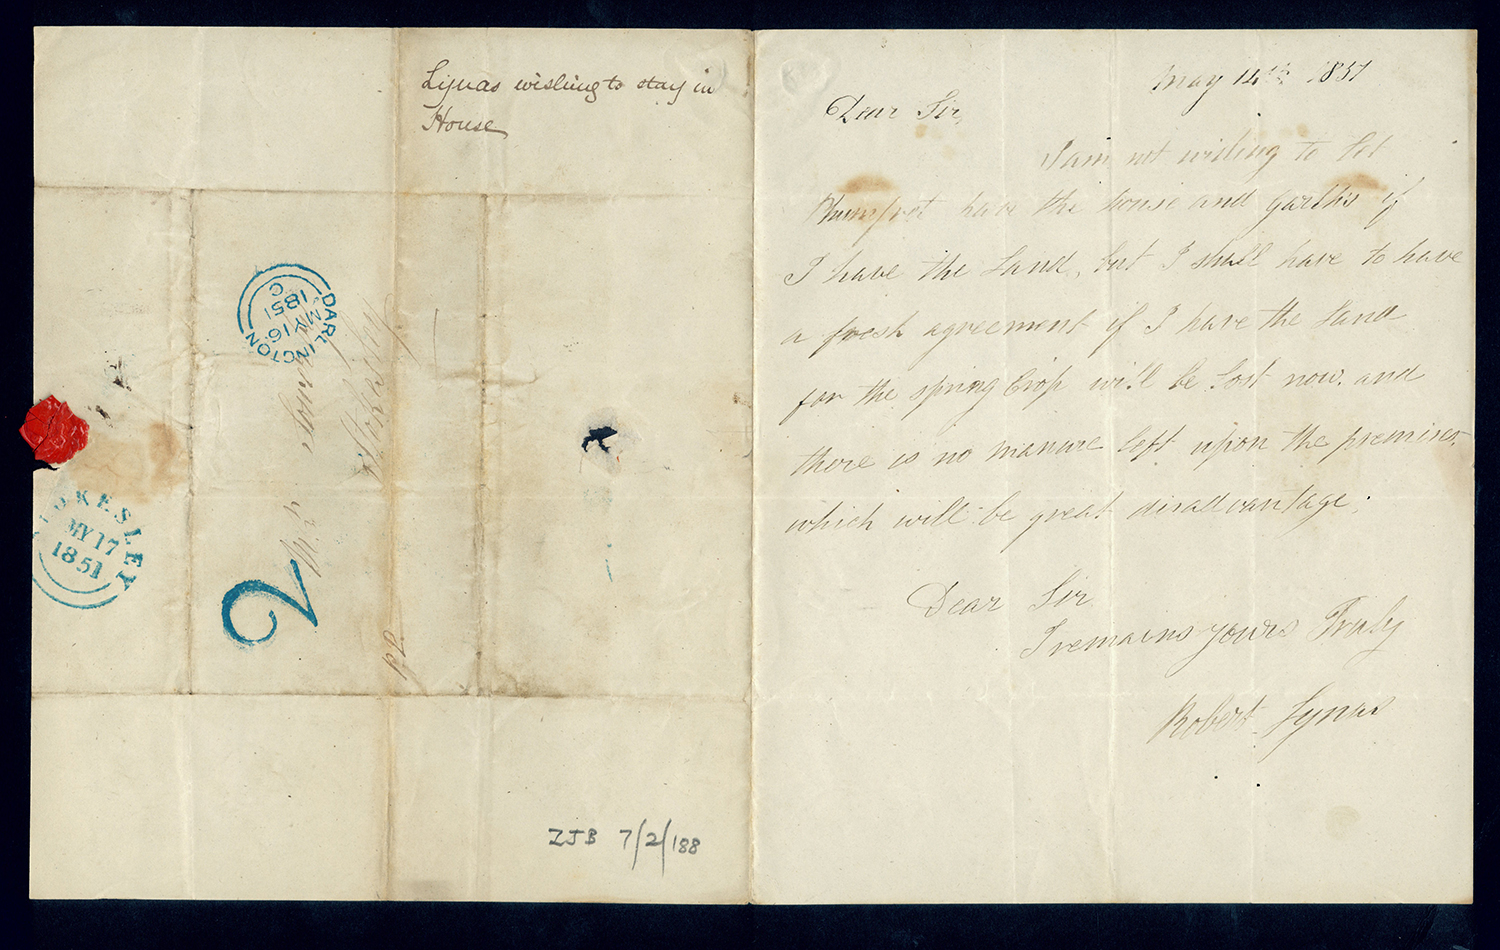 Lynas wishing to stay in
House
DARLINGTON
MY 16
1851
C
STOKESLEY
MY 17
1851
2
Mr
Stokesley
pd
ZJB 7/2/188
May 14th 1851
Dear Sir,
I am not wishing to Let
have the house and garths if
I have the Land, but I shall have to have
a fresh agreement if I have the Land
for the spring Crop will be Lost now. and
there is no manure left upon the premises
which will be great disadvantage;
Dear Sir
I remains yours Truly
Robert Lynas